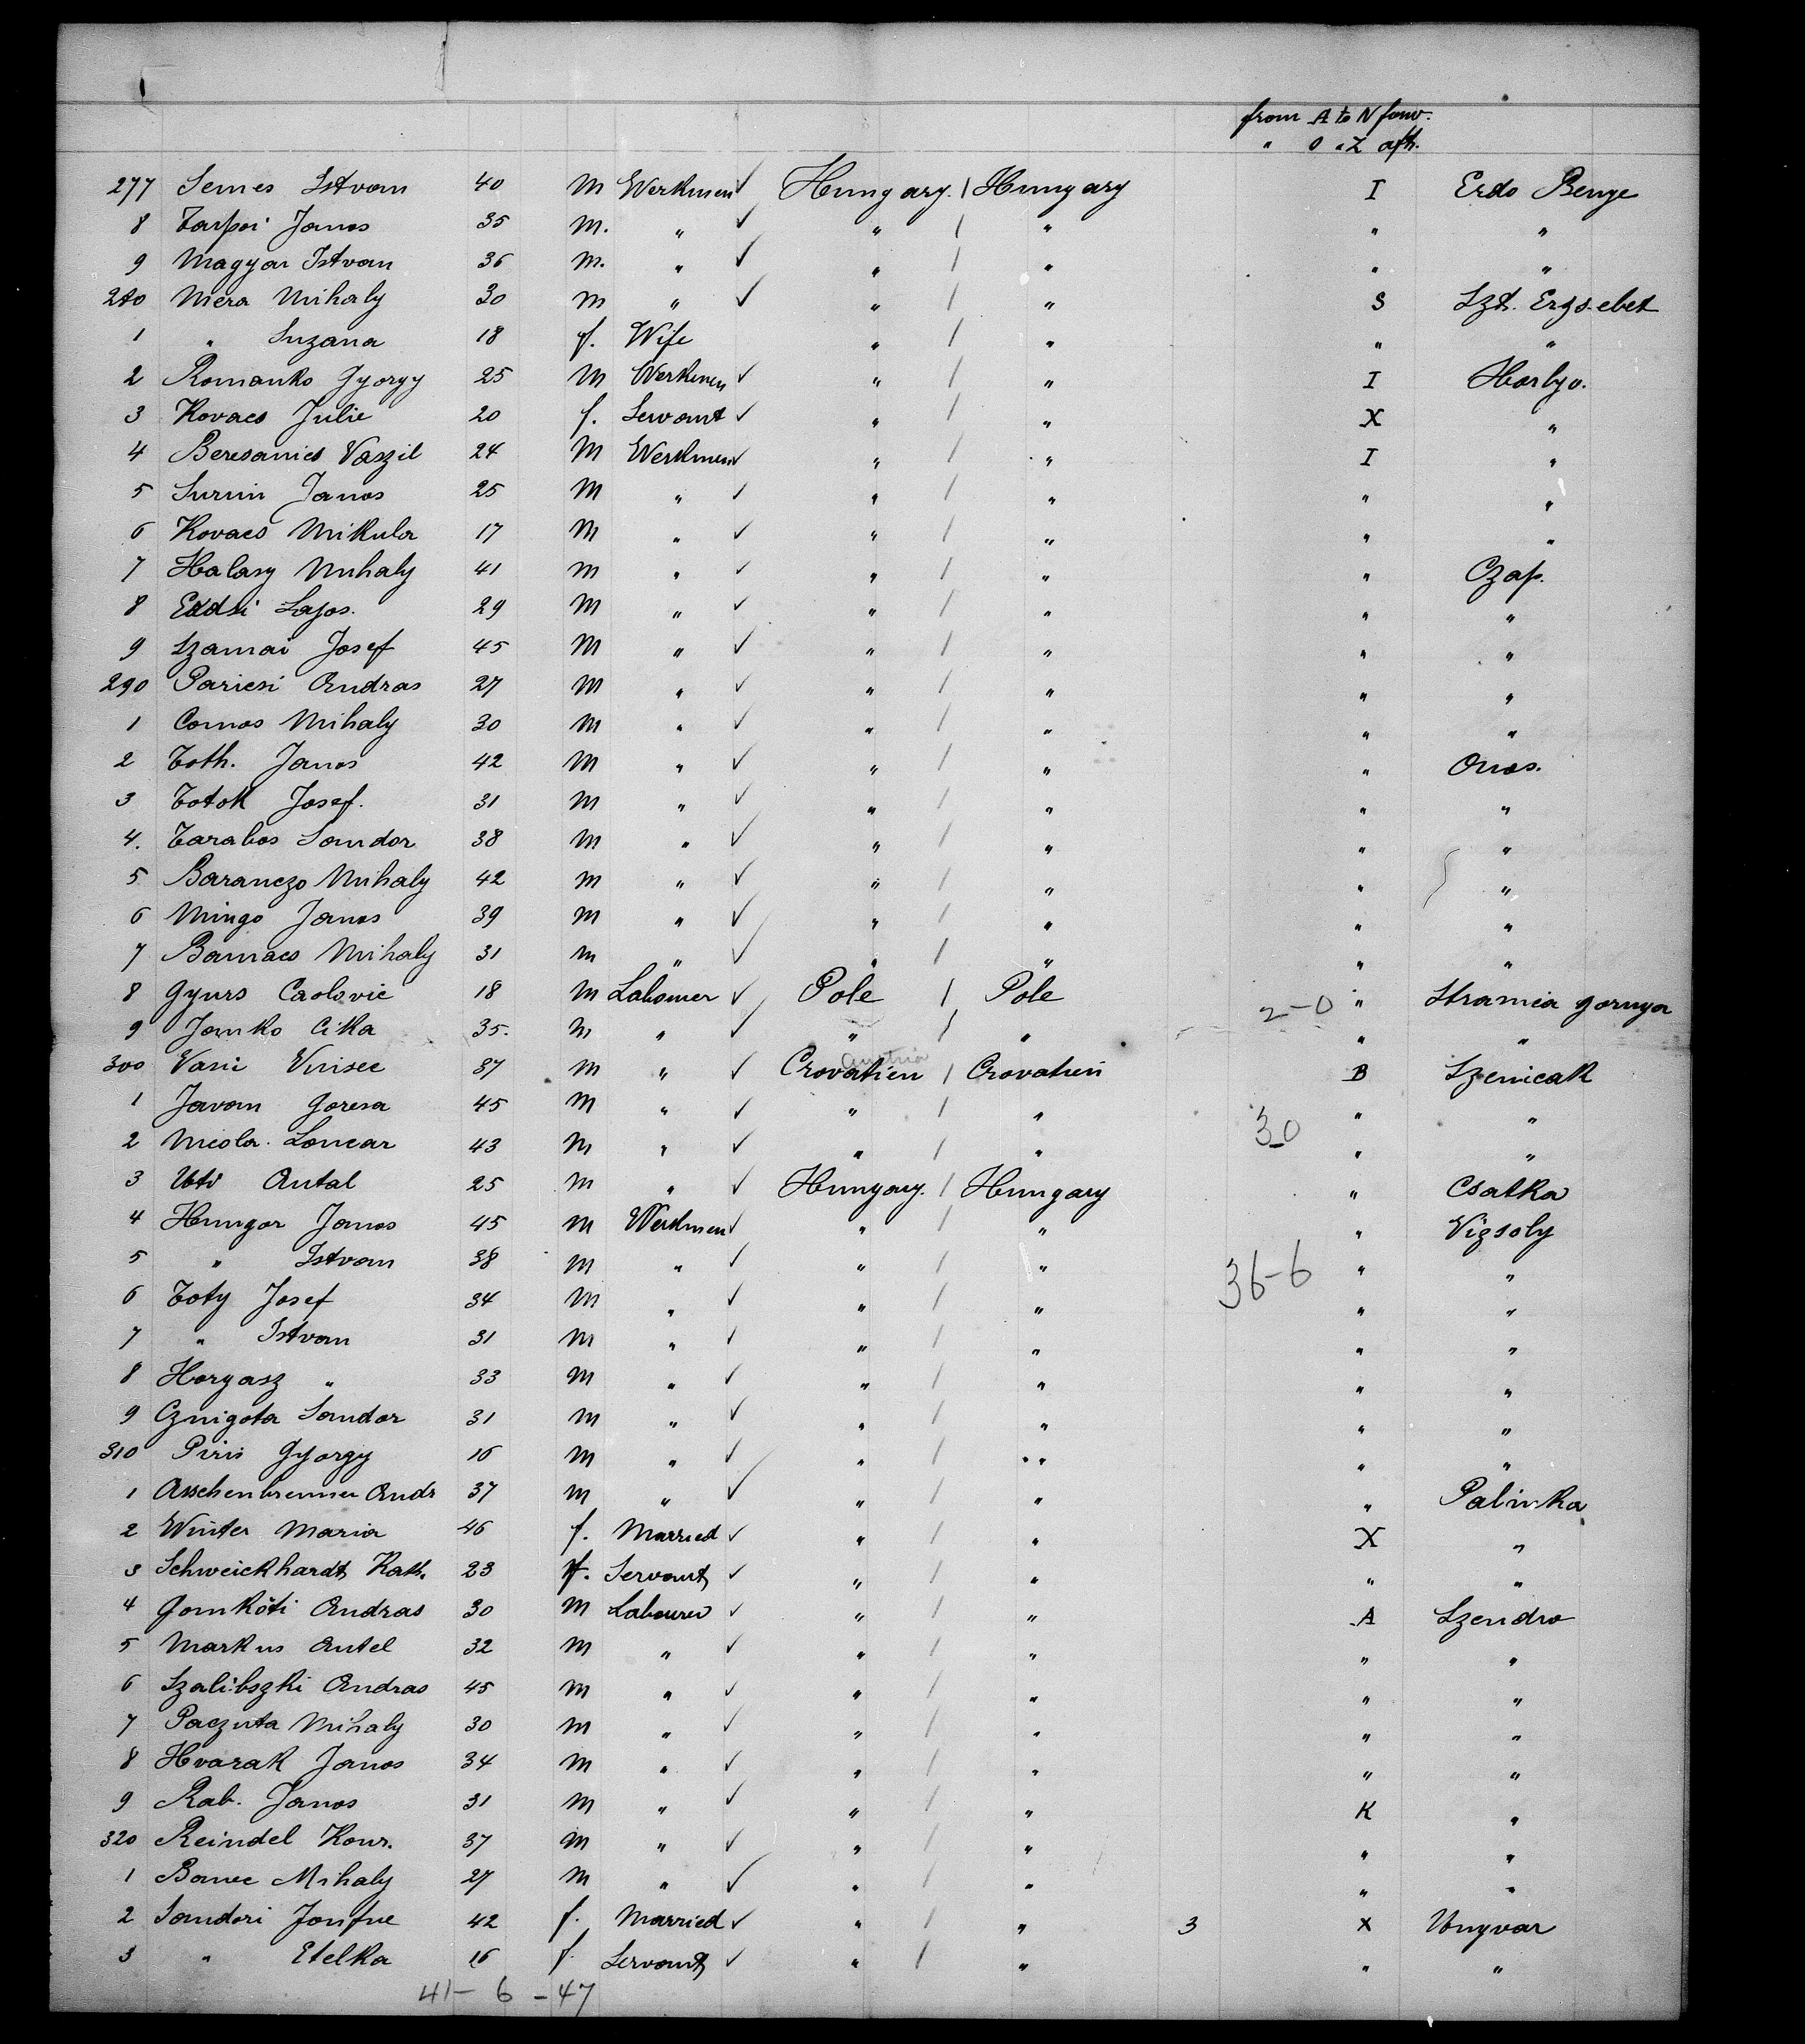 from A to N forw.
" O " Z aft.
277 Semes Istvan 40 M Werkmen ✓ Hungary. / Hungary I Erdo Benye
8 Tarpai Janos 35 M. " ✓ " / " " "
9 Magyar Istvan 36 M. " ✓ " / " " "
280 Mera Mihaly 30 M " ✓ " / " S Szt. Erzsebet
1 " Suzana 18 f. Wife " / " " "
2 Romanko Gyorgy 25 M Werkmen ✓ " / " I Horlyo.
3 Kovacs Julie 20 f. Servant ✓ " / " X "
4 Beresanics Vaszil 24 M Werkmen ✓ " / " I "
5 Surnin Janos 25 M " ✓ " / " " "
6 Kovacs Mikula 17 M " ✓ " / " " "
7 Halasy Mihaly 41 M " ✓ " / " " Czap.
8 Lajos. 29 M " ✓ " / " " "
9 Szamai Josef 45 M " ✓ " / " " "
290 Paricsi Andras 27 M " ✓ " / " " "
1 Comos Mihaly 30 M " ✓ " / " " "
2 Toth. Janos 42 M " ✓ " / " " Onos.
3 Totok Josef. 31 M " ✓ " / " " "
4. Tarabos Sandor 38 M " ✓ " / " " "
5 Baranczo Mihaly 42 M " ✓ " / " " "
6 Mingo Janos 39 M " ✓ " / " " "
7 Barnacs Mihaly 31 M " ✓ " / " " "
8 Gyurs Caolovic 18 M Labourer ✓ Pole / Pole 2-0 " Stramia gornya
9 Janko Cika 35. M " ✓ " / " " "
Austria
300 Vasic Vinisec 37 M " ✓ Crovatien / Crovatien B Szenicak
1 Javan Goresa 45 M " ✓ " / " " "
30
2 Nicola. Loncar 43 M " ✓ " / " " "
3 Antal 25 M " ✓ Hungary. / Hungary " Csatka
4 Hungar Janos 45 M Werkmen ✓ " / " " Vizsoly
5 " Istvan 38 M " ✓ " / " 36-6 " "
6 Toty Josef 34 M " ✓ " / " " "
7 " Istvan 31 M " ✓ " / " " "
8 Horgasz " 33 M " ✓ " / " " "
9 Cznigota Sandor 31 M " ✓ " / " " "
310 Piris Gyorgy 16 M " ✓ " / " " " "
1 Asschenbrenner Andr 37 M " ✓ " / " " Palinka
2 Winter Maria 46 f. Married ✓ " / " X "
3 Schweickhardt Kath. 23 f. Servant ✓ " / " " "
4 Gomköti Andras 30 M Labourer ✓ " / " A Szendro
5 Markus Antel 32 M " ✓ " / " " "
6 Szalibszki Andras 45 M " ✓ " / " " "
7 Paczuta Mihaly 30 M " ✓ " / " " "
8 Hvarak Janos 34 M " ✓ " / " " "
9 Rab. Janos 31 M " ✓ " / " K "
320 Reindel Konr. 37 M " ✓ " / " " "
1 Banec Mihaly 27 M " ✓ " / " " "
2 Sandori 42 f. Married ✓ " / " 3 X Ungvar
3 " Etelka 16 f. Servant ✓ " / " " "
41- 6 -47